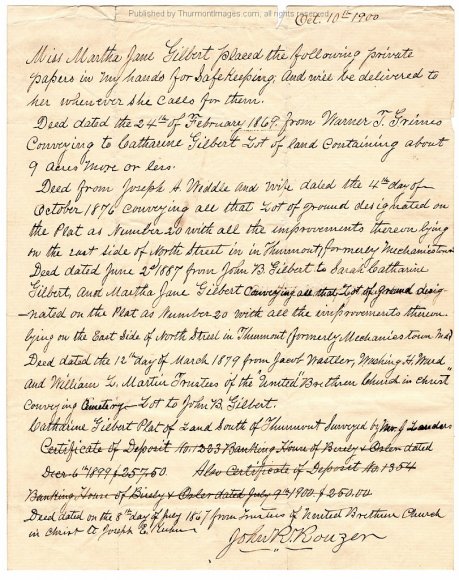 Published by Thurmontimages.com, all rights reserved
Oct. 10th 1900
Miss Martha Jane Gilbert placed the following private
papers in my hands for Safekeeping, And will be delivered to
her whenever She Calls for them.
Deed dated the 24th of February 1869. from Warner T. Grimes
Conveying to Catharine Gilbert Lot of land Containing about
9 Acres More or less.
Deed from Joseph A. Weddle and wife dated the 4th day of
October 1876 Conveying all that Lot of ground designated on
the Plat as Number 20 with all the improvements thereon lying
on the East side of North Street in in Thurmont, formerly Mechanicstown
Deed dated June 2d 1887 from John B Gilbert to Sarah Catharine
Gilbert, and Martha Jane Gilbert Conveying all that Lot of Ground desig
-nated on the Plat as Number 20 with all the improvements thereon
lying on the East Side of North Street in Thurmont (formerly Mechanicstown Md)
Deed dated the 12th day of March 1879 from Jacob Wastler, H. Weed
and William L. Martin Trustees of the "United" Brethren Church in Christ"
Conveying Cemetery Lot to John B. Gilbert.
Catharine Gilbert Plat of Land South of Thurmont Surveyed by
Certificate of Deposit No. 1223 Banking House of Birely & Osler dated
Decr 6th 1899 $257.50 Also Certificate of Deposit No 1354
Banking House of Birely & Osler dated July 9th 1900 $250.00
Deed dated on the 8th day of July 1867 from Trustees of United Brethren Church
in Christ to Joseph E.
John R. Rouzer